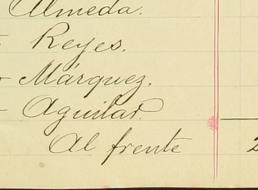 Almeda.
Reyes.
Márquez.
Aguilar
Al frente 2